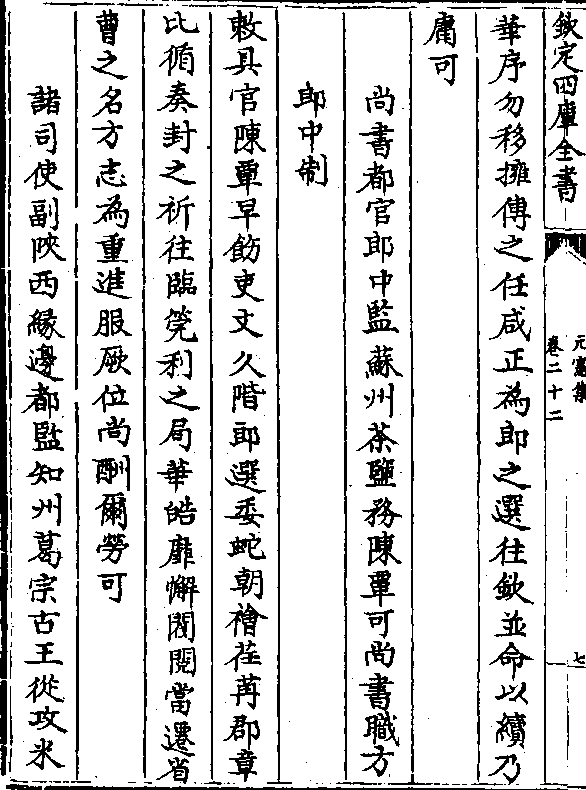 欽定四庫全書
元憲集
卷二十二
七
華序勿移擁傳之任咸正為郎之選往欽並命以續乃
庸可
尚書都官郎中監蘇州茶鹽務陳覃可尚書職方
郎中制
敕具官陳覃早飭吏文久階郎選委蛇朝襘荏苒郡章
比循奏封之祈往臨筦利之局華皓靡懈閥閱當遷省
曹之名方志為重進服厥位尚酬爾勞可
諸司使副陜西緣邊都監知州葛宗古王從攻米